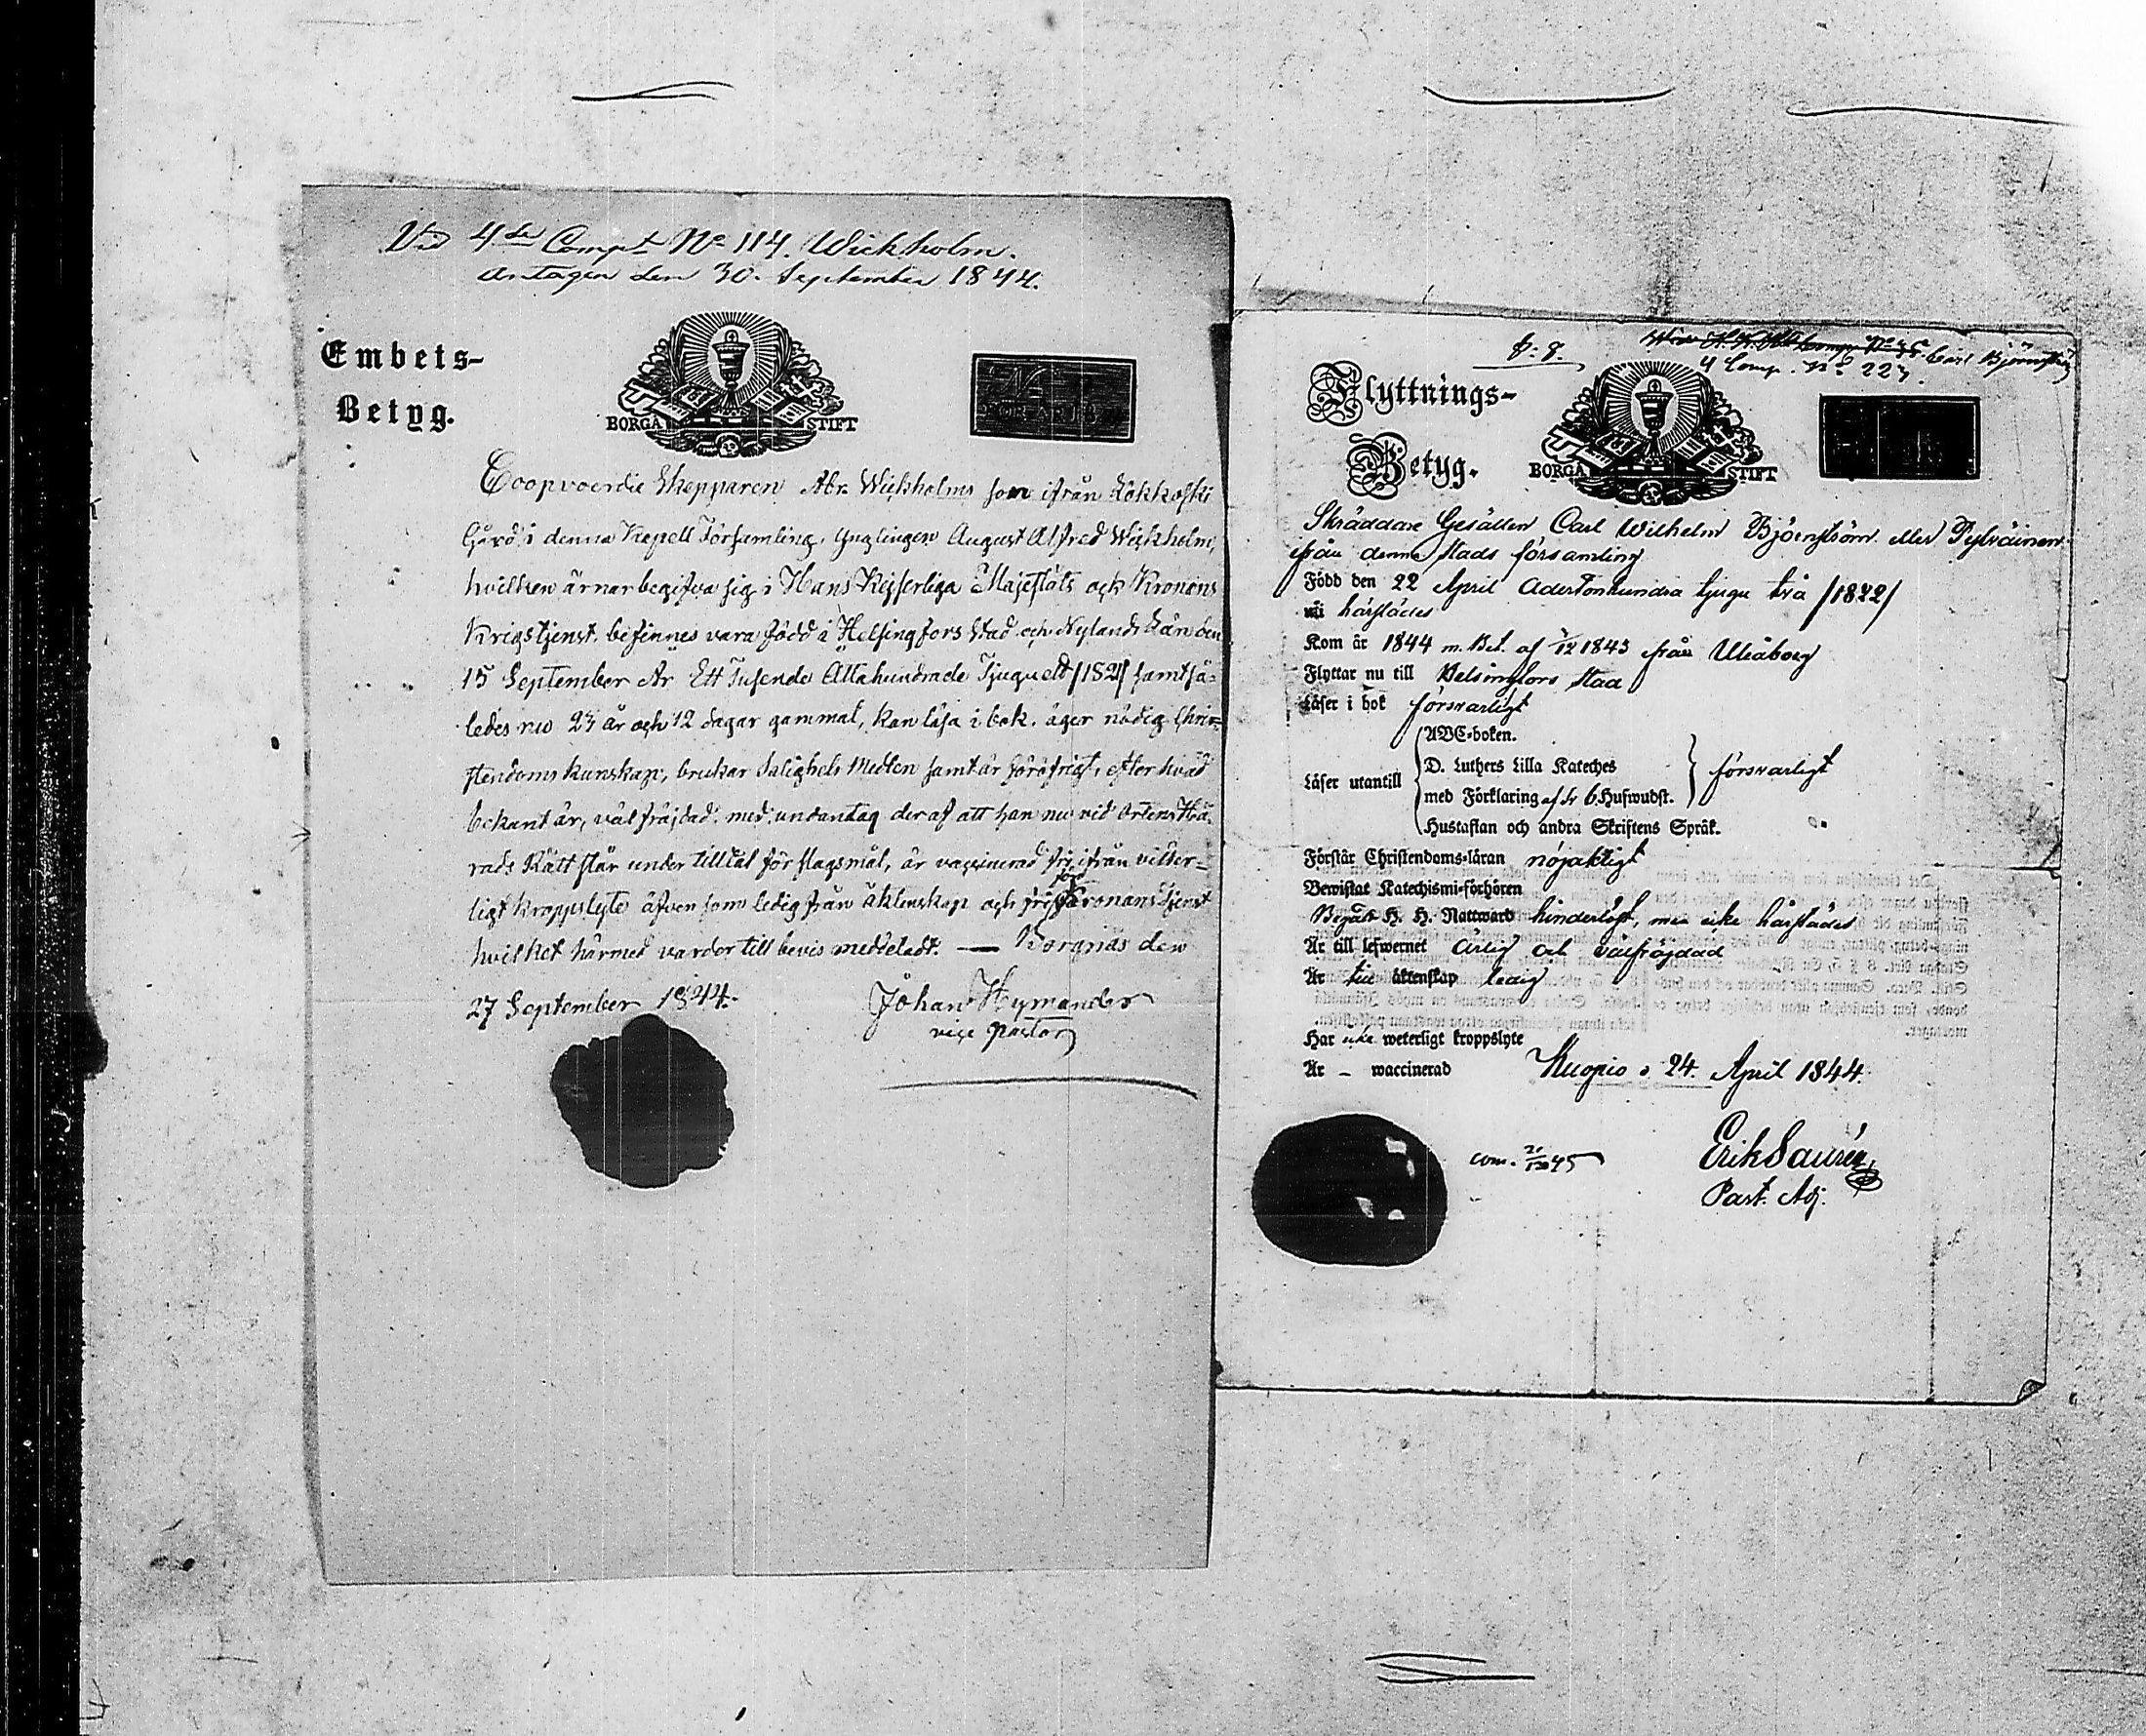 Vid 4de Compt No 114. Wickholm.
Antagen den 30. September 1844.
Embets-
Betyg.
BORGÅ STIFT
Coopvoerdie Skepparen Abr. Wickholms son ifrån Kåkkoski
Gård i denna Kapell Församling, Ynglingen August Alfred Wickholm,
hvilken ärnar begifva sig i Hans Kejserliga Majestäts och Kronans
Krigstjenst, befinnes vara född i Helsingfors Stad och Nylands Län den
15 September År Ett Tusende Åttahundrade Tjuguett /1821/ samt så-
ledes nu 23 år och 12 dagar gammal, kan läsa i bok, äger nödig Chri-
stendoms kunskap, brukar Salighets Medlen samt är för öfrigt, efter hvad
bekant är, väl fräjdad, med undantag deraf att han nu vid ortens Hä-
rads Rätt står under tilltal för slagsmål, är vaccinerad, fri ifrån vitter-
ligt kroppslyte äfven som ledig från äktenskap och fri för Kronans tjenst
hvilket härmed varder till bevis meddeladt. — Borgnäs den
27 September 1844.
Johan Hymander
vice pastor
p: 8.
Carl Björnström
4 Comp. No 227.
Flyttnings-
Betyg.
BORGÅ STIFT
Skräddare Gesällen Carl Wilhelm Björnström eller Pylväinen
ifrån denna stads församling
Född den 22 April Adertonhundra tjugu två /1822/
härstädes
Kom år 1844 m. Bet. af /12 1843 från Uleåborg
Flyttar nu till Helsingfors stad
Läser i bok försvarligt
Läser utantill
ABC-boken.
D. Luthers Lilla Kateches
med Förklaring af de 6 Hufwudst.
försvarligt
Hustaflan och andra Skriftens Språk.
Förstår Christendoms-läran nöjaktigt
Bewistat Katechismi-förhören
Begått H. H. Nattward hinderlöst, men icke härstädes
Är till lefwernet ärlig och välfräjdad
Är till äktenskap ledig
Har icke weterligt kroppslyte
Är – waccinerad
Kuopio d. 24. April 1844.
com. 45
Erik Saurén
Past. Adj.